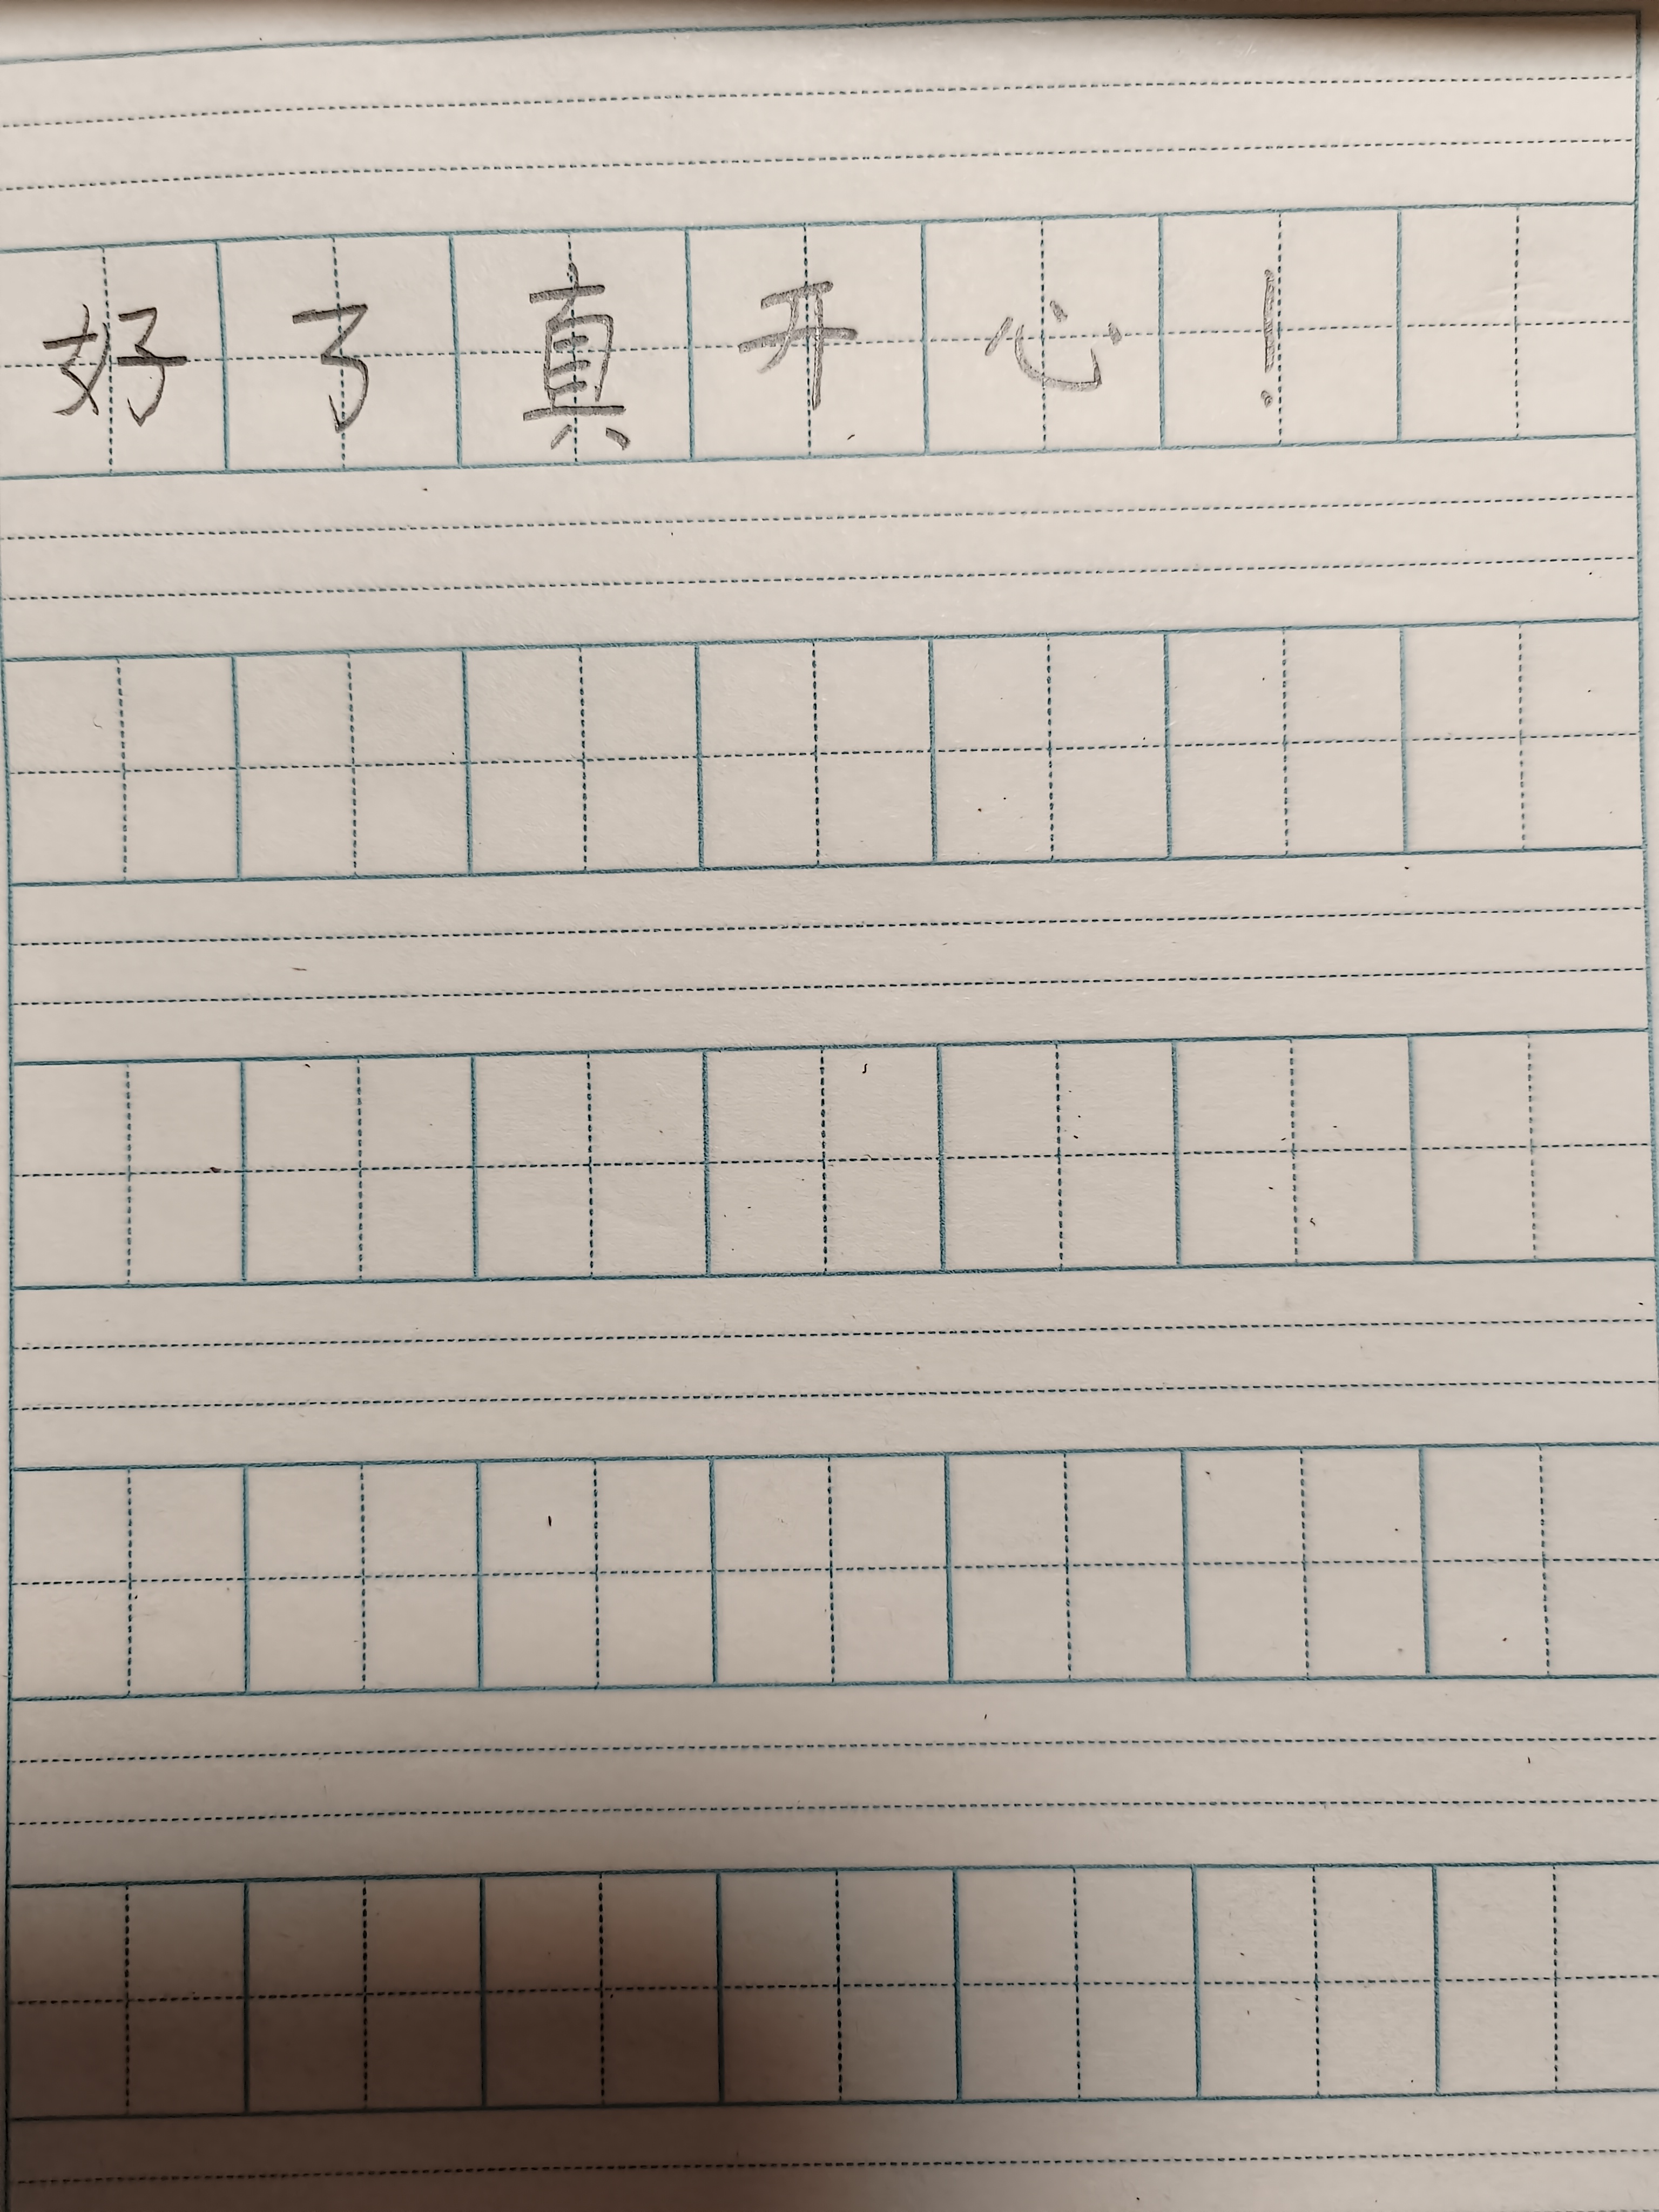 好了真开心!